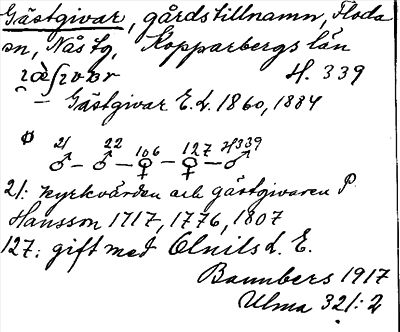 Gästgivar, gårdstillnamn, Floda
sn, Nås tg, Kopparbergs län
H. 339
— Gästgivar E. L. 1860, 1884
Ø 21 22 106 127 H339
♂ — ♂ — ♀ — ♀ — ♂
21: kyrkvärden och gästgivaren P.
Hansson 1717, 1776, 1807
127: gift med Olnils L. E.
1917
Ulma 321:2